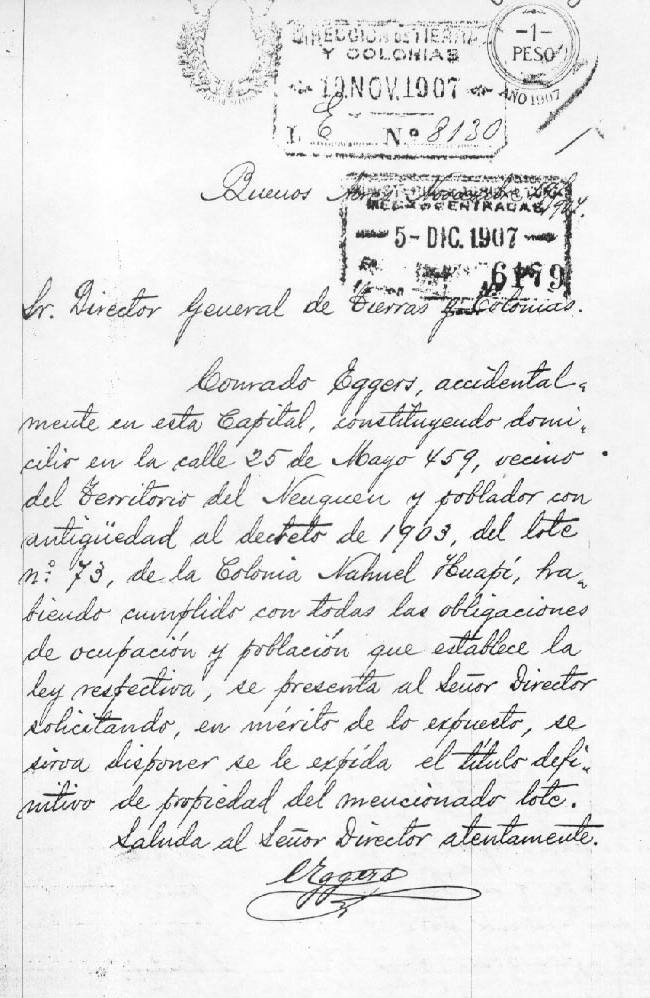 DIRECCION DE TIERRAS
Y COLONIAS
19 NOV. 1907
L E Nº 8130
-1-
PESO
AÑO 1907
Buenos Aires, Noviembre
MESA DE ENTRADAS
5- DIC. 1907
6179
Sr. Director General de Tierras y Colonias.
Conrado Eggers, accidental-
mente en esta Capital, constituyendo domi-
cilio en la calle 25 de Mayo 459, vecino
del Territorio del Neuquen y poblador con
antigüedad al decreto de 1903, del lote
n.º 73, de la Colonia Nahuel Huapí, ha-
biendo cumplido con todas las obligaciones
de ocupación y población que establece la
ley respectiva, se presenta al Señor Director
solicitando, en mérito de lo expuesto, se
sirva disponer se le expida el título defi-
nitivo de propiedad del mencionado lote.
Saluda al Señor Director atentamente.
CEggers